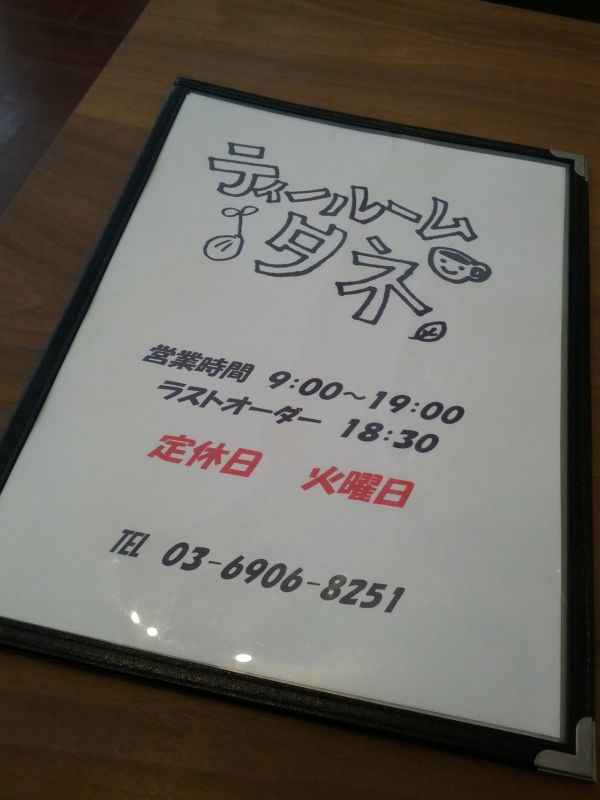 ティールーム
タネ
営業時間 9:00～19:00
ラストオーダー 18:30
定休日 火曜日
TEL 03-6906-8251